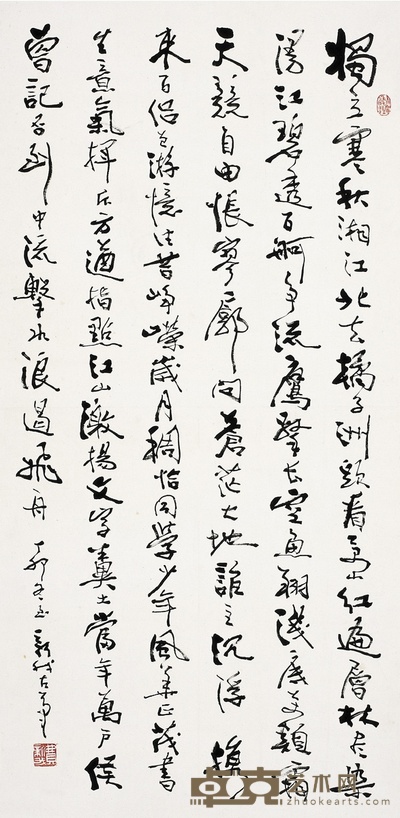 獨立寒秋湘江北去橘子洲頭看万山紅遍層林尽染
漫江碧透百舸争流鷹擊長空魚翔淺底万類霜
天競自由悵寥廓問蒼茫大地誰主沉浮攜
來百侣曾游憶往昔崢嶸歲月稠恰同學少年風華正茂書
生意氣揮斥方遒指點江山激揚文字糞土當年萬户侯
曾記否到中流擊水浪遏飛舟
卓克艺术网
zhuokearts.com